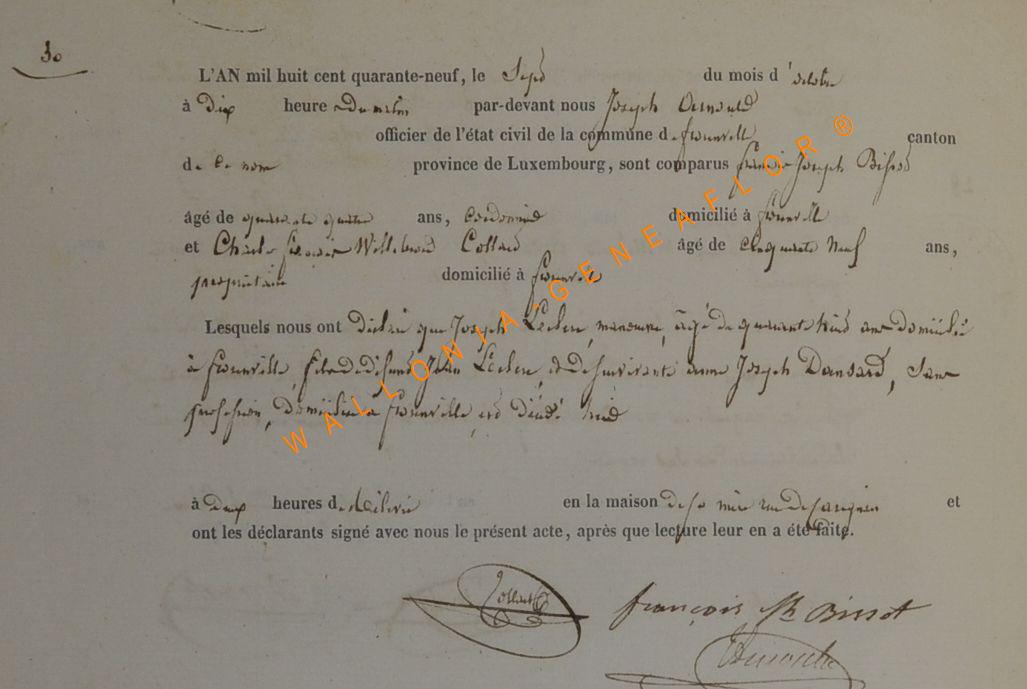 30
L'AN mil huit cent quarante-neuf, le Sept du mois d'octobre
à dix heure du matin par-devant nous Joseph Arnould
officier de l'état civil de la commune de florenville canton
de ce nom province de Luxembourg, sont comparus françois Joseph Bissot
âgé de quarante quatre ans, Cordonnier domicilié à florenville
et Charles Willebrord Collard âgé de cinquante Neuf ans,
propriétaire domicilié à florenville
Lesquels nous ont déclaré que Joseph Leclerc, manœuvre, âgé de quarante trois ans domicilié
à florenville, fils de défunt Jean Leclerc, et de survivante anne Joseph Dansard, Sans
profession, domiciliée à florenville, est décédé
à deux heures de en la maison de sa mère rue de carignan et
ont les déclarants signé avec nous le présent acte, après que lecture leur en a été faite.
Collard françois Jh Bissot
WALLONIA-GENEAFLOR ®